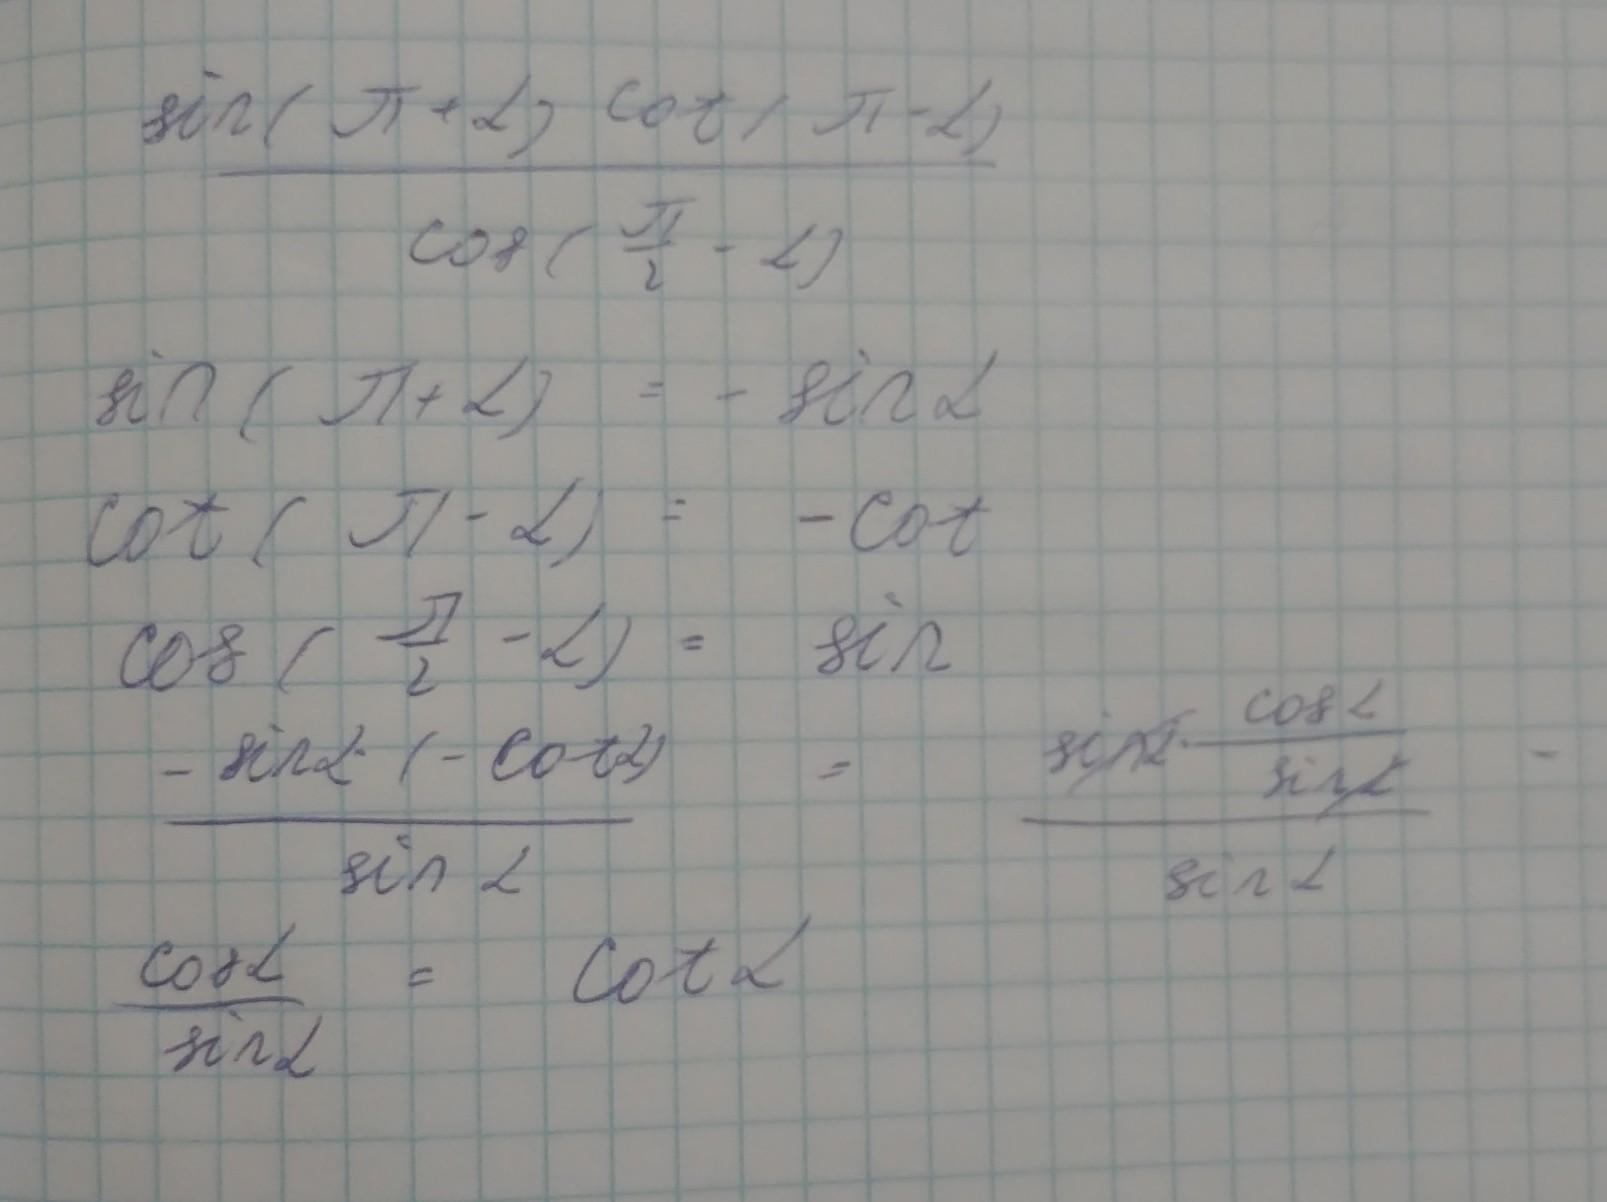 sin(π+α) cot(π-α)
cos(π/2 - α)
sin(π+α) = - sin α
cot(π-α) = - cot
cos(π/2 - α) = sin
- sin α · (- cot α) / sin α = sin α · cos α / sin α / sin α -
cos α / sin α = cot α